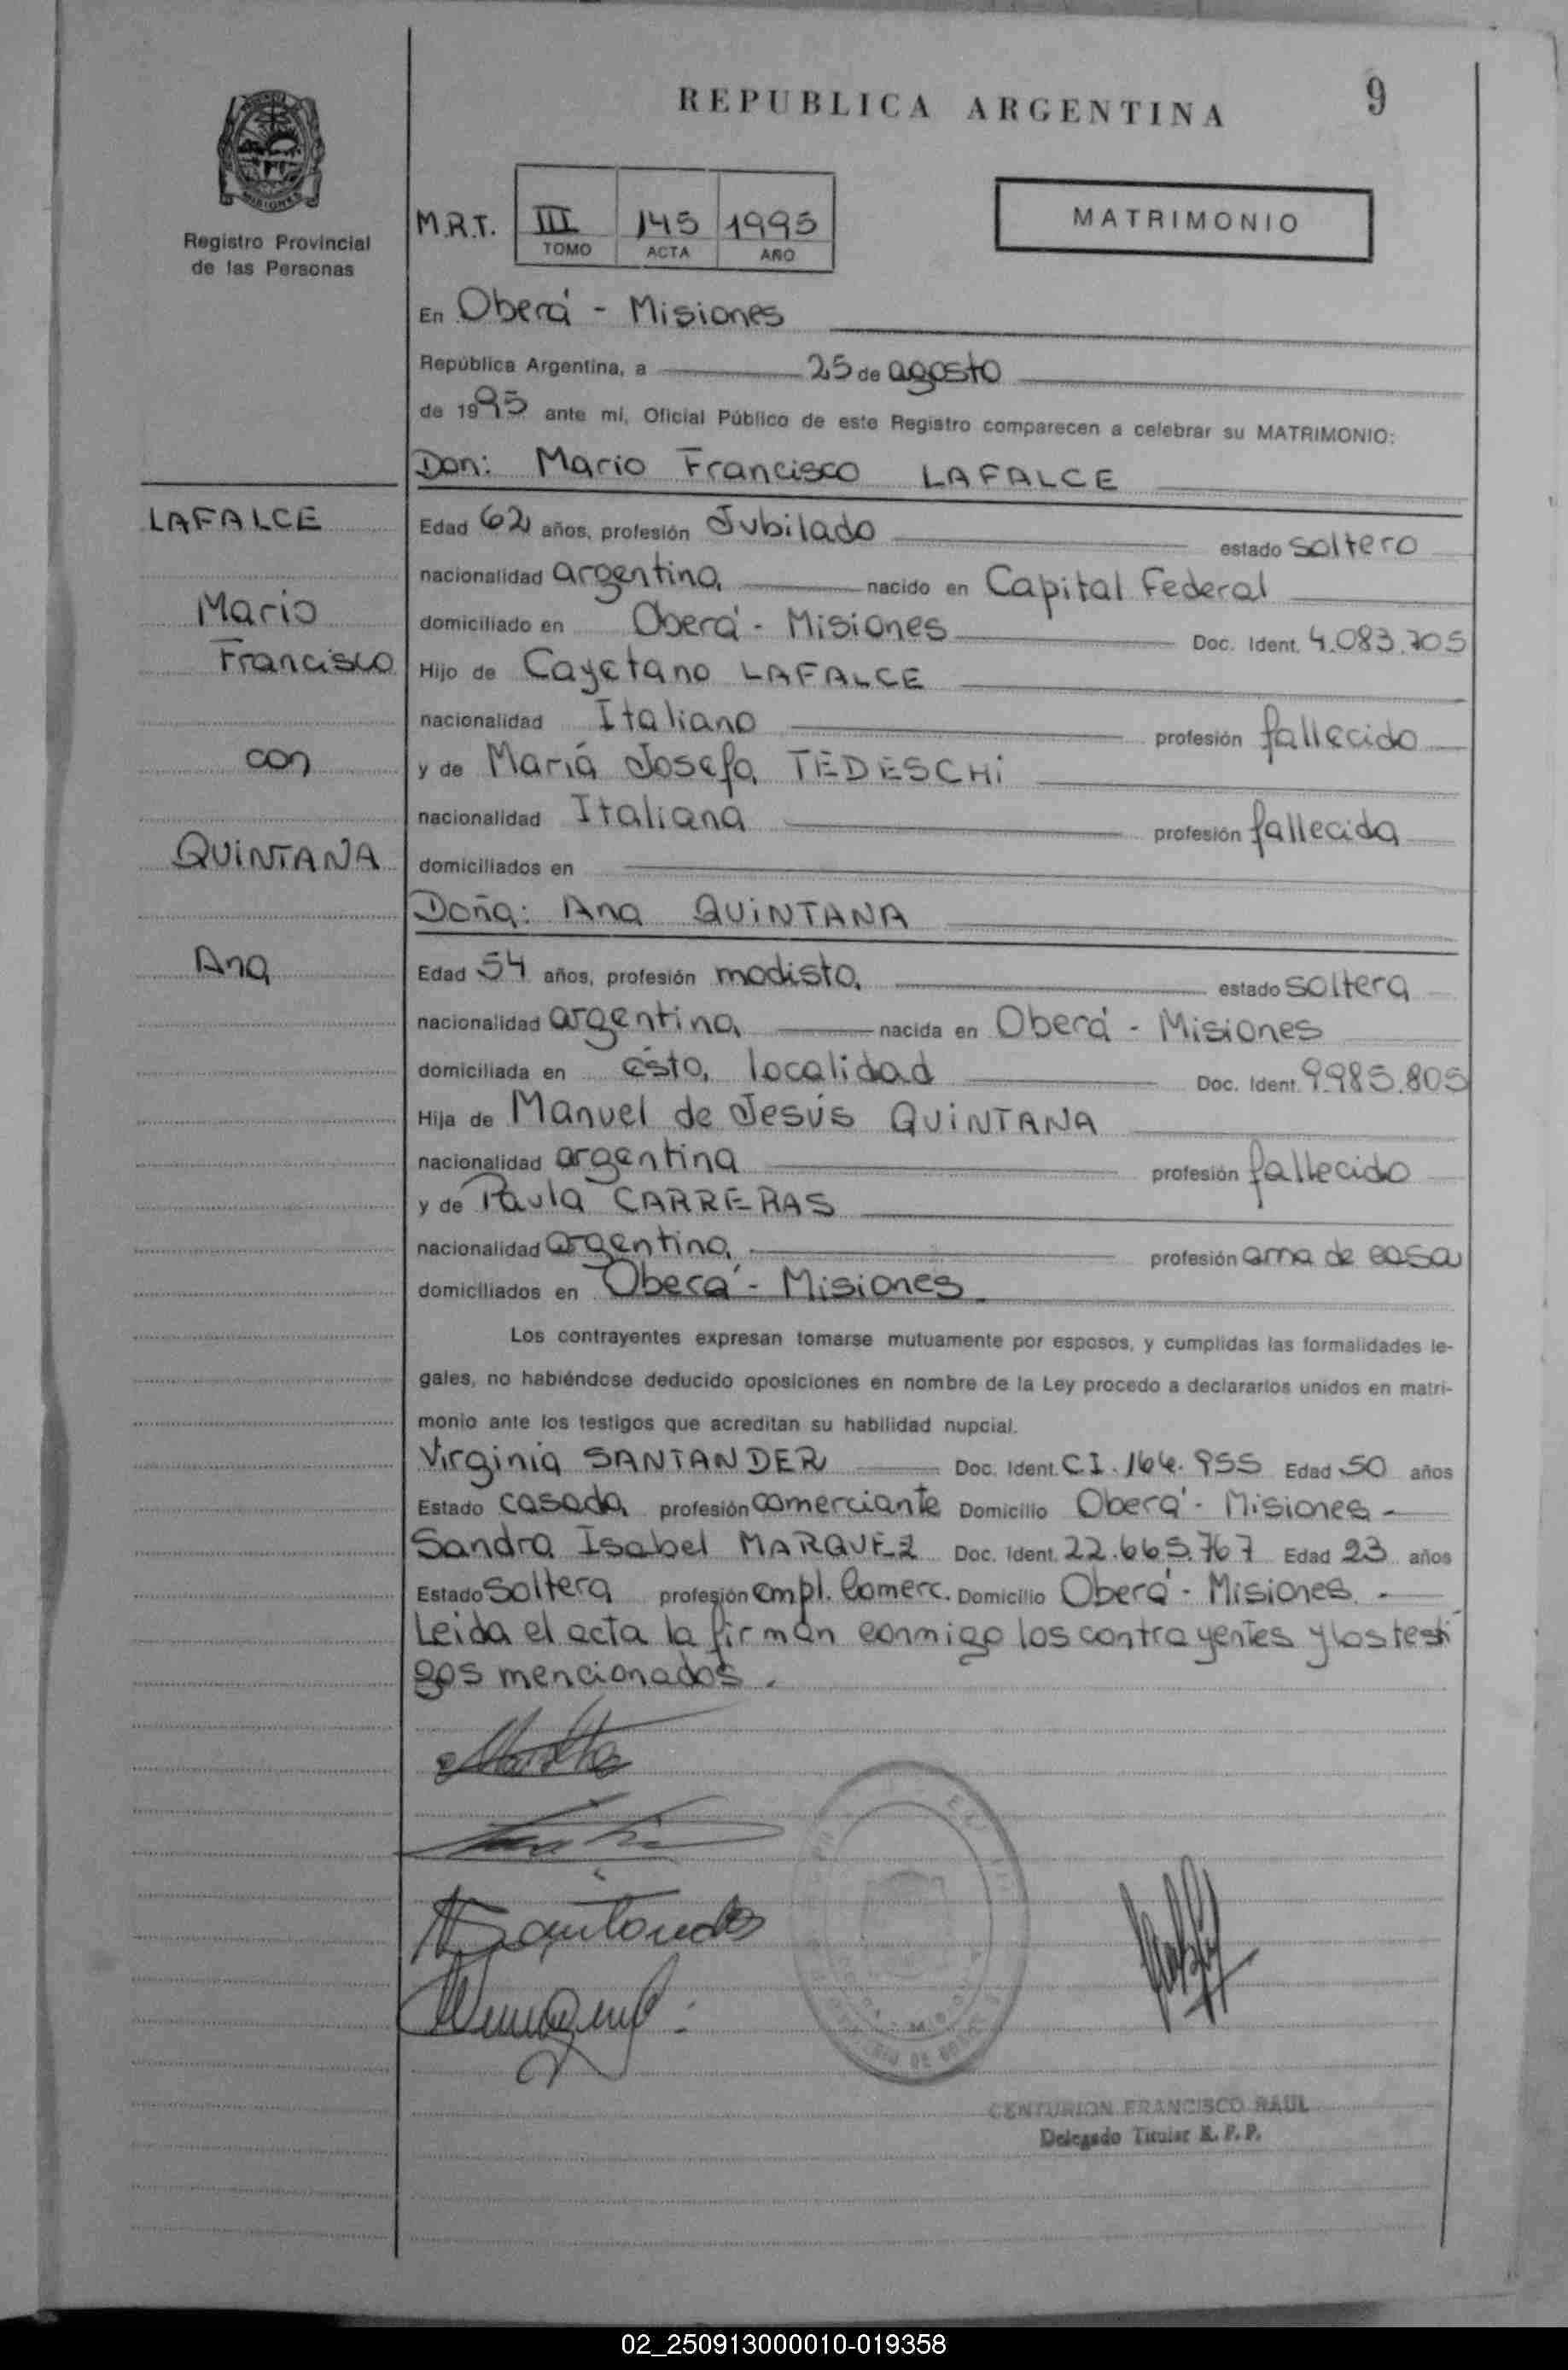 REPUBLICA ARGENTINA
9
MISIONES
Registro Provincial
de las Personas
M.R.T. III 145 1995
TOMO ACTA AÑO
MATRIMONIO
En Oberá - Misiones
República Argentina, a 25 de agosto
de 1995 ante mí, Oficial Público de este Registro comparecen a celebrar su MATRIMONIO:
Don: Mario Francisco LAFALCE
LAFALCE
Mario
Francisco
con
QUINTANA
Ana
Edad 62 años, profesión Jubilado estado soltero
nacionalidad argentina nacido en Capital Federal
domiciliado en Oberá - Misiones Doc. Ident. 4.083.705
Hijo de Cayetano LAFALCE
nacionalidad Italiano profesión fallecido
y de María Josefa TEDESCHI
nacionalidad Italiana profesión fallecida
domiciliados en
Doña: Ana QUINTANA
Edad 54 años, profesión modista estado soltera
nacionalidad argentina nacida en Oberá - Misiones
domiciliada en ésta localidad Doc. Ident. 9.985.805
Hija de Manuel de Jesús QUINTANA
nacionalidad argentina profesión fallecido
y de Paula CARRERAS
nacionalidad argentina profesión ama de casa
domiciliados en Oberá - Misiones
Los contrayentes expresan tomarse mutuamente por esposos, y cumplidas las formalidades le-
gales, no habiéndose deducido oposiciones en nombre de la Ley procedo a declararlos unidos en matri-
monio ante los testigos que acreditan su habilidad nupcial.
Virginia SANTANDER Doc. Ident. C.I. 164.955 Edad 50 años
Estado casada profesión comerciante Domicilio Oberá - Misiones -
Sandra Isabel MARQUEZ Doc. Ident. 22.665.767 Edad 23 años
Estado soltera profesión empl. Comerc. Domicilio Oberá - Misiones. -
Leida el acta la firman conmigo los contrayentes y los testi
gos mencionados.
CENTURION FRANCISCO RAUL
Delegado Titular R. P. P.
02_250913000010-019358